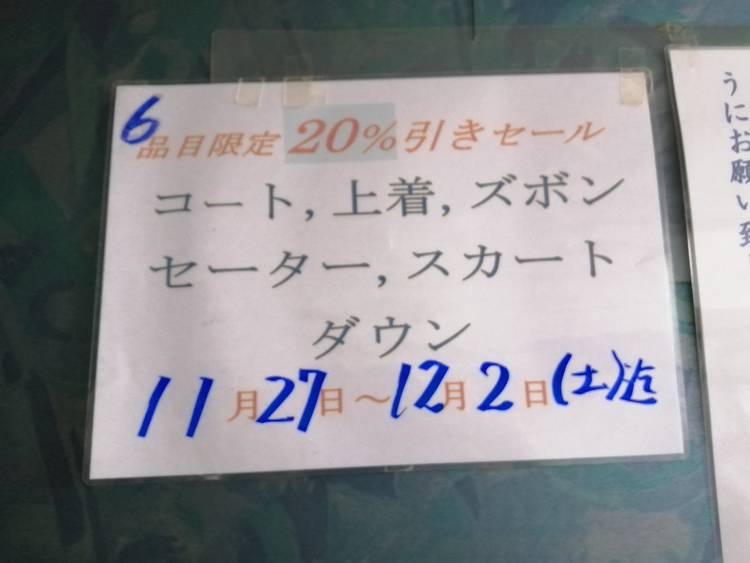 6品目限定 20%引きセール
コート, 上着, ズボン
セーター, スカート
ダウン
11月27日〜12月2日(土)迄
うにお願い致